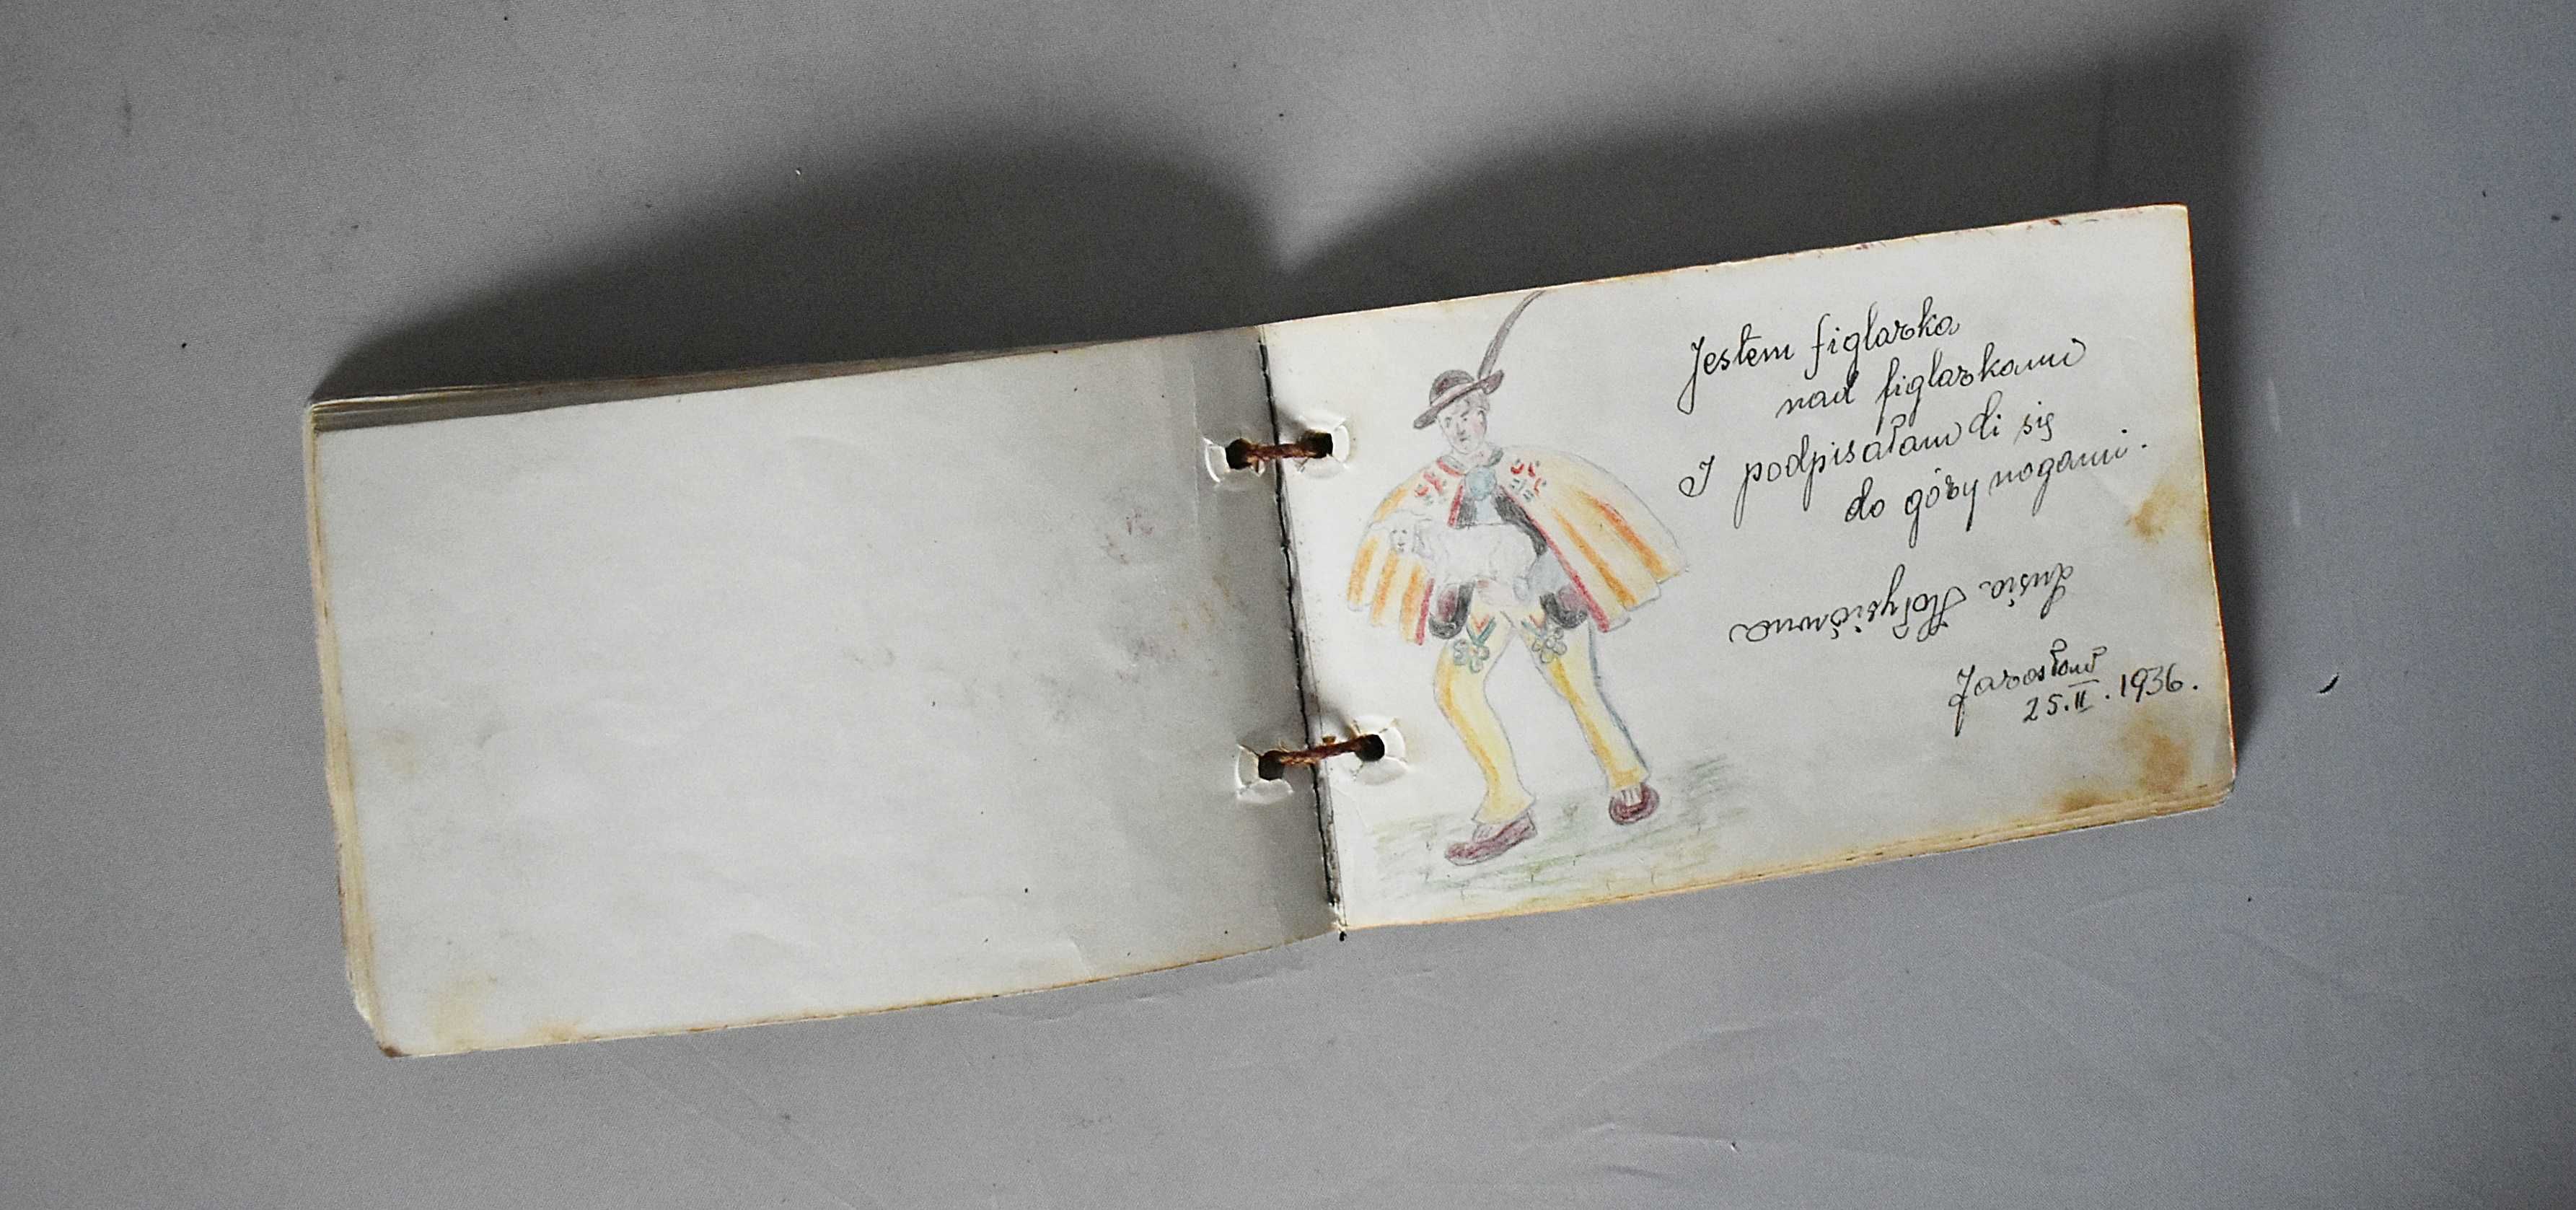 Jestem figlarka
nad figlarkami
I podpisałam Ci się
do góry nogami.
Lusia
Jarosław
25.II.1936.